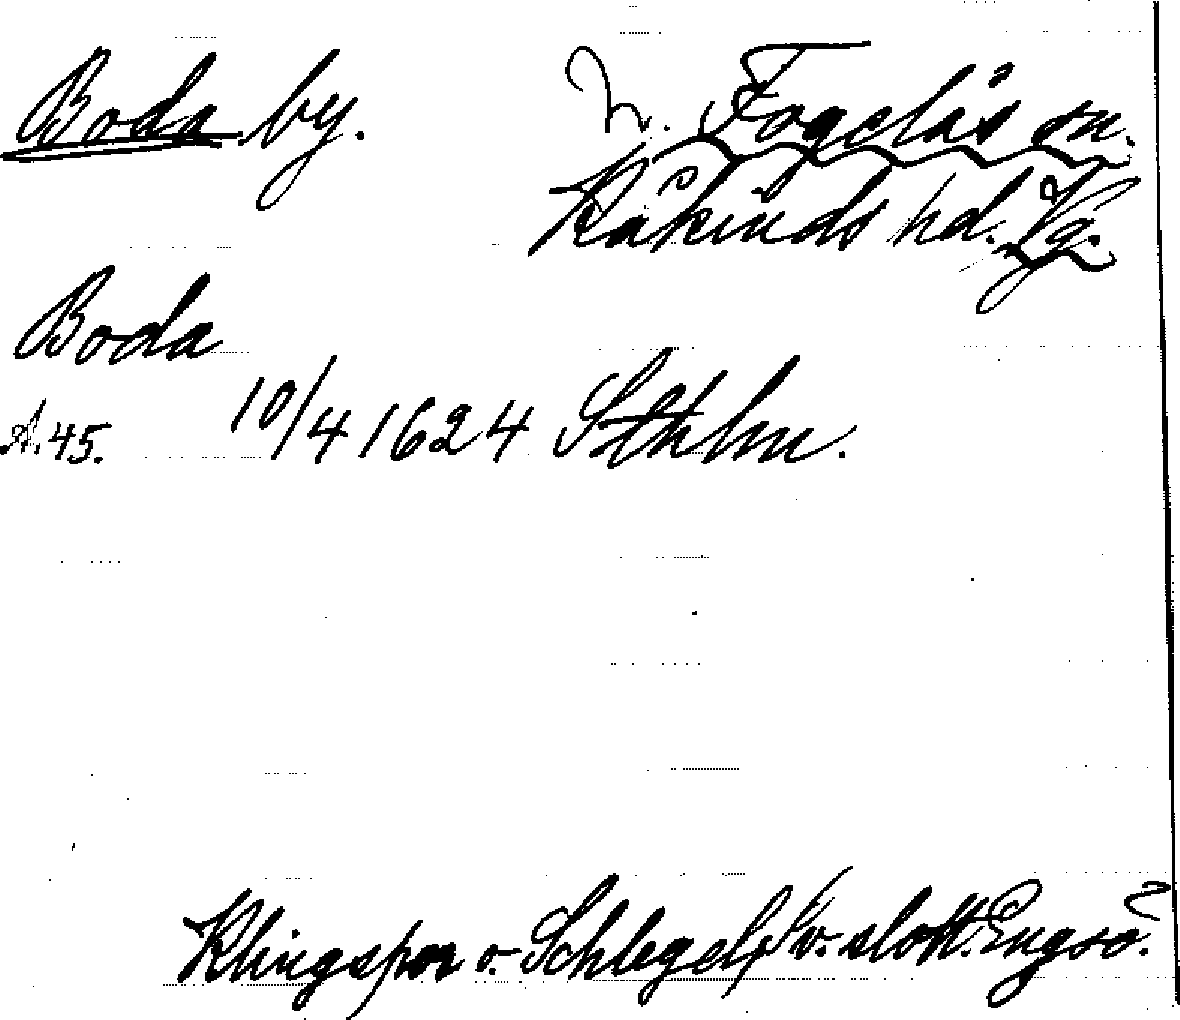 Boda by. N. Fogelås sn.
Kåkinds hd. Vg.
Boda
A. 45. 10/4 1624 Sthlm.
Klingspor o. Schlegel, Sv. slott. Engsö.